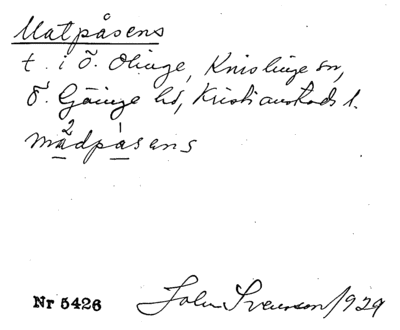 Matpåsens
t. i Ö. Olinge, Knislinge sn,
Ö. Göinge hd, Kristianstads l.
ma²dpàsens
Nr 5426 John Svensson/1929